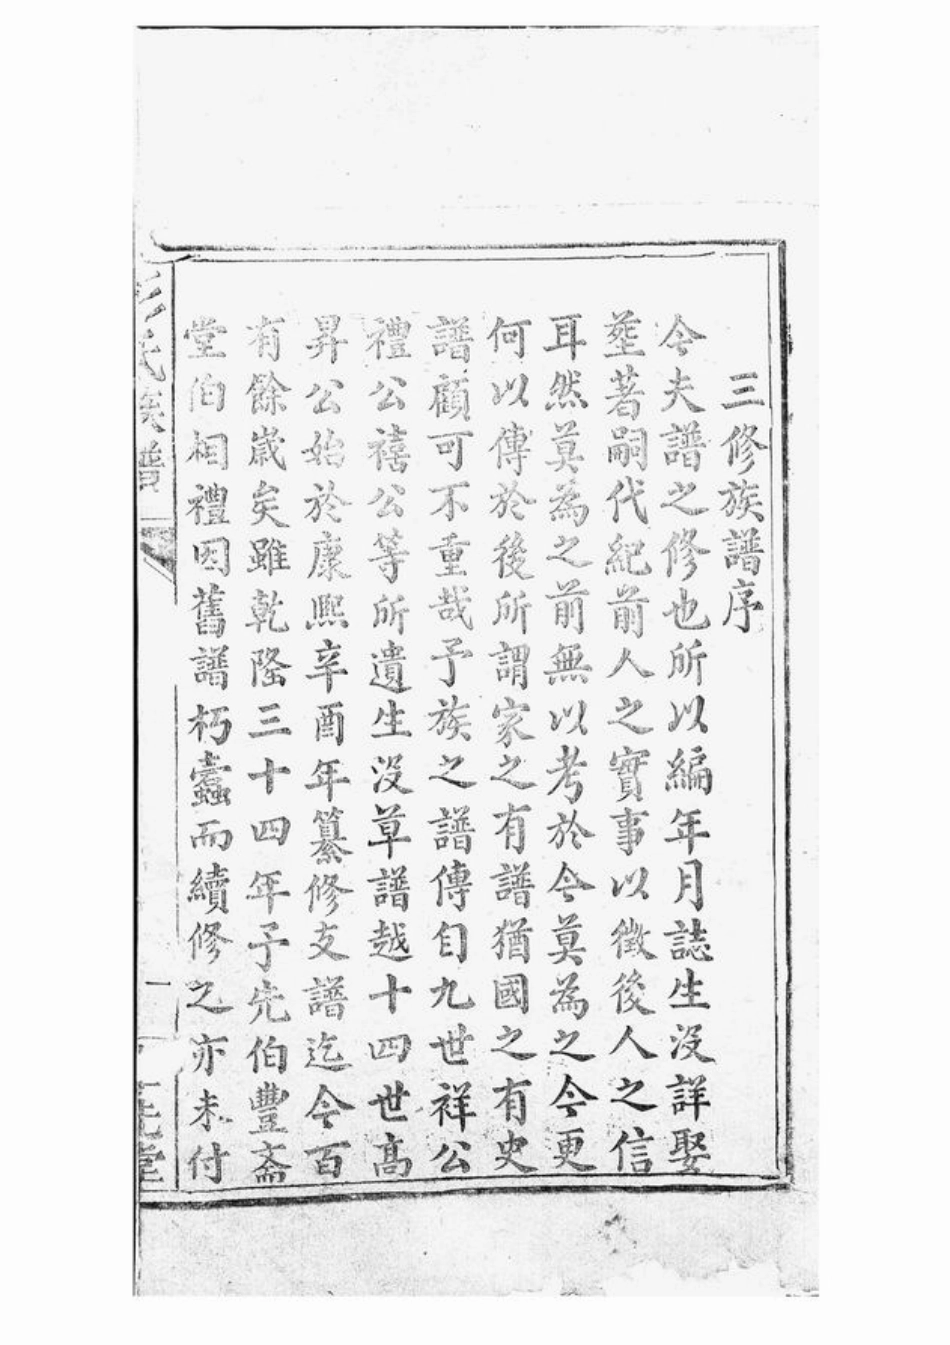 三修族譜序
今夫譜之修也所以編年月誌生没詳娶
塟著嗣代紀前人之實事以徵後人之信
耳然莫為之前無以考於今莫為之今更
何以傳於後所謂家之有譜猶國之有史
譜顧可不重哉予族之譜傳自九世祥公
禮公禧公等所遺生没草譜越十四世高
昇公始於康熙辛酉年纂修支譜迄今百
有餘歲矣雖乾隆三十四年予先伯豐斋
堂伯相禮因舊譜朽蠧而續修之亦未付
氏族譜
一
先堂